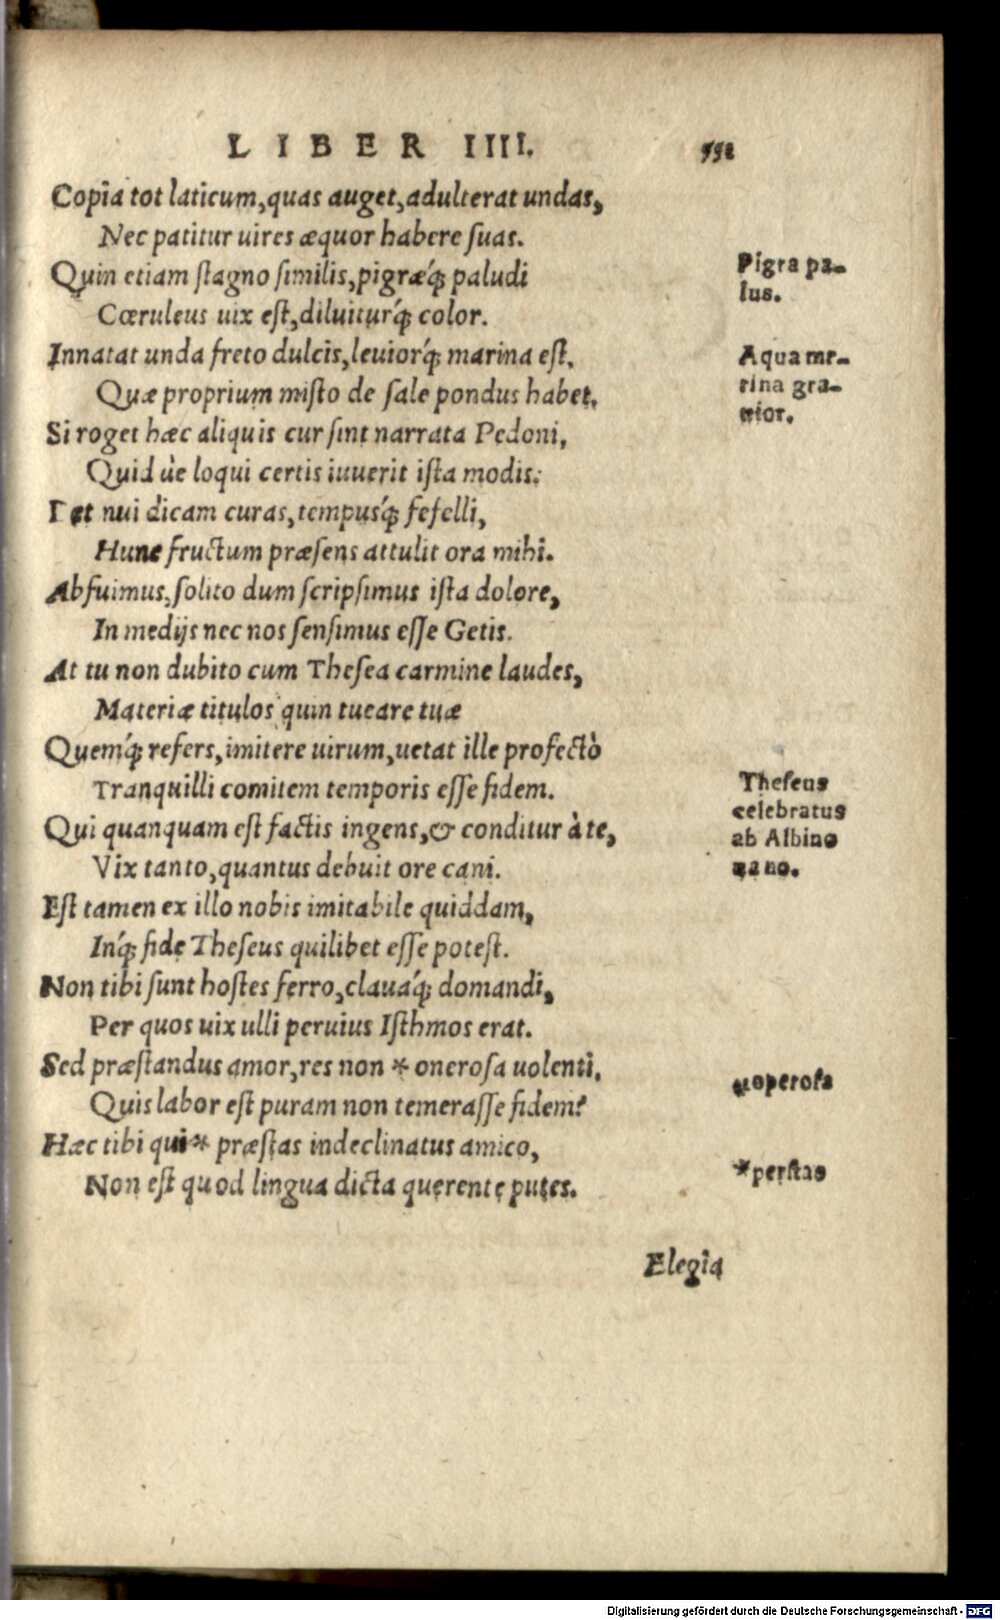 LIBER IIII. 551
Copia tot laticum, quas auget, adulterat undas,
Nec patitur uires æquor habere suas.
Quin etiam stagno similis, pigræq́; paludi
Pigra pa-
lus.
Cœruleus uix est, diluiturq́; color.
Innatat unda freto dulcis, leuiorq́; marina est,
Aqua ma-
rina gra-
uior.
Quæ proprium misto de sale pondus habet.
Si roget hæc aliquis cur sint narrata Pedoni,
Quid ùe loqui certis iuuerit ista modis:
et nui dicam curas, tempusq́; fefelli,
Hunc fructum præsens attulit ora mihi.
Abfuimus, solito dum scripsimus ista dolore,
In medijs nec nos sensimus esse Getis.
At tu non dubito cum Thesea carmine laudes,
Materiæ titulos quin tueare tuæ
Quemq́; refers, imitere uirum, uetat ille profectò
Tranquilli comitem temporis esse fidem.
Theseus
celebratus
ab Albino
uano.
Qui quanquam est factis ingens, & conditur à te,
Vix tanto, quantus debuit ore cani.
Est tamen ex illo nobis imitabile quiddam,
Inq́; fide Theseus quilibet esse potest.
Non tibi sunt hostes ferro, clauaq́; domandi,
Per quos uix ulli peruius Isthmos erat.
Sed præstandus amor, res non * onerosa uolenti.
*operosa
Quis labor est puram non temerasse fidem?
Hæc tibi qui * præstas indeclinatus amico,
*perstas
Non est quod lingua dicta querente putes.
Elegia
Digitalisierung gefördert durch die Deutsche Forschungsgemeinschaft - DFG